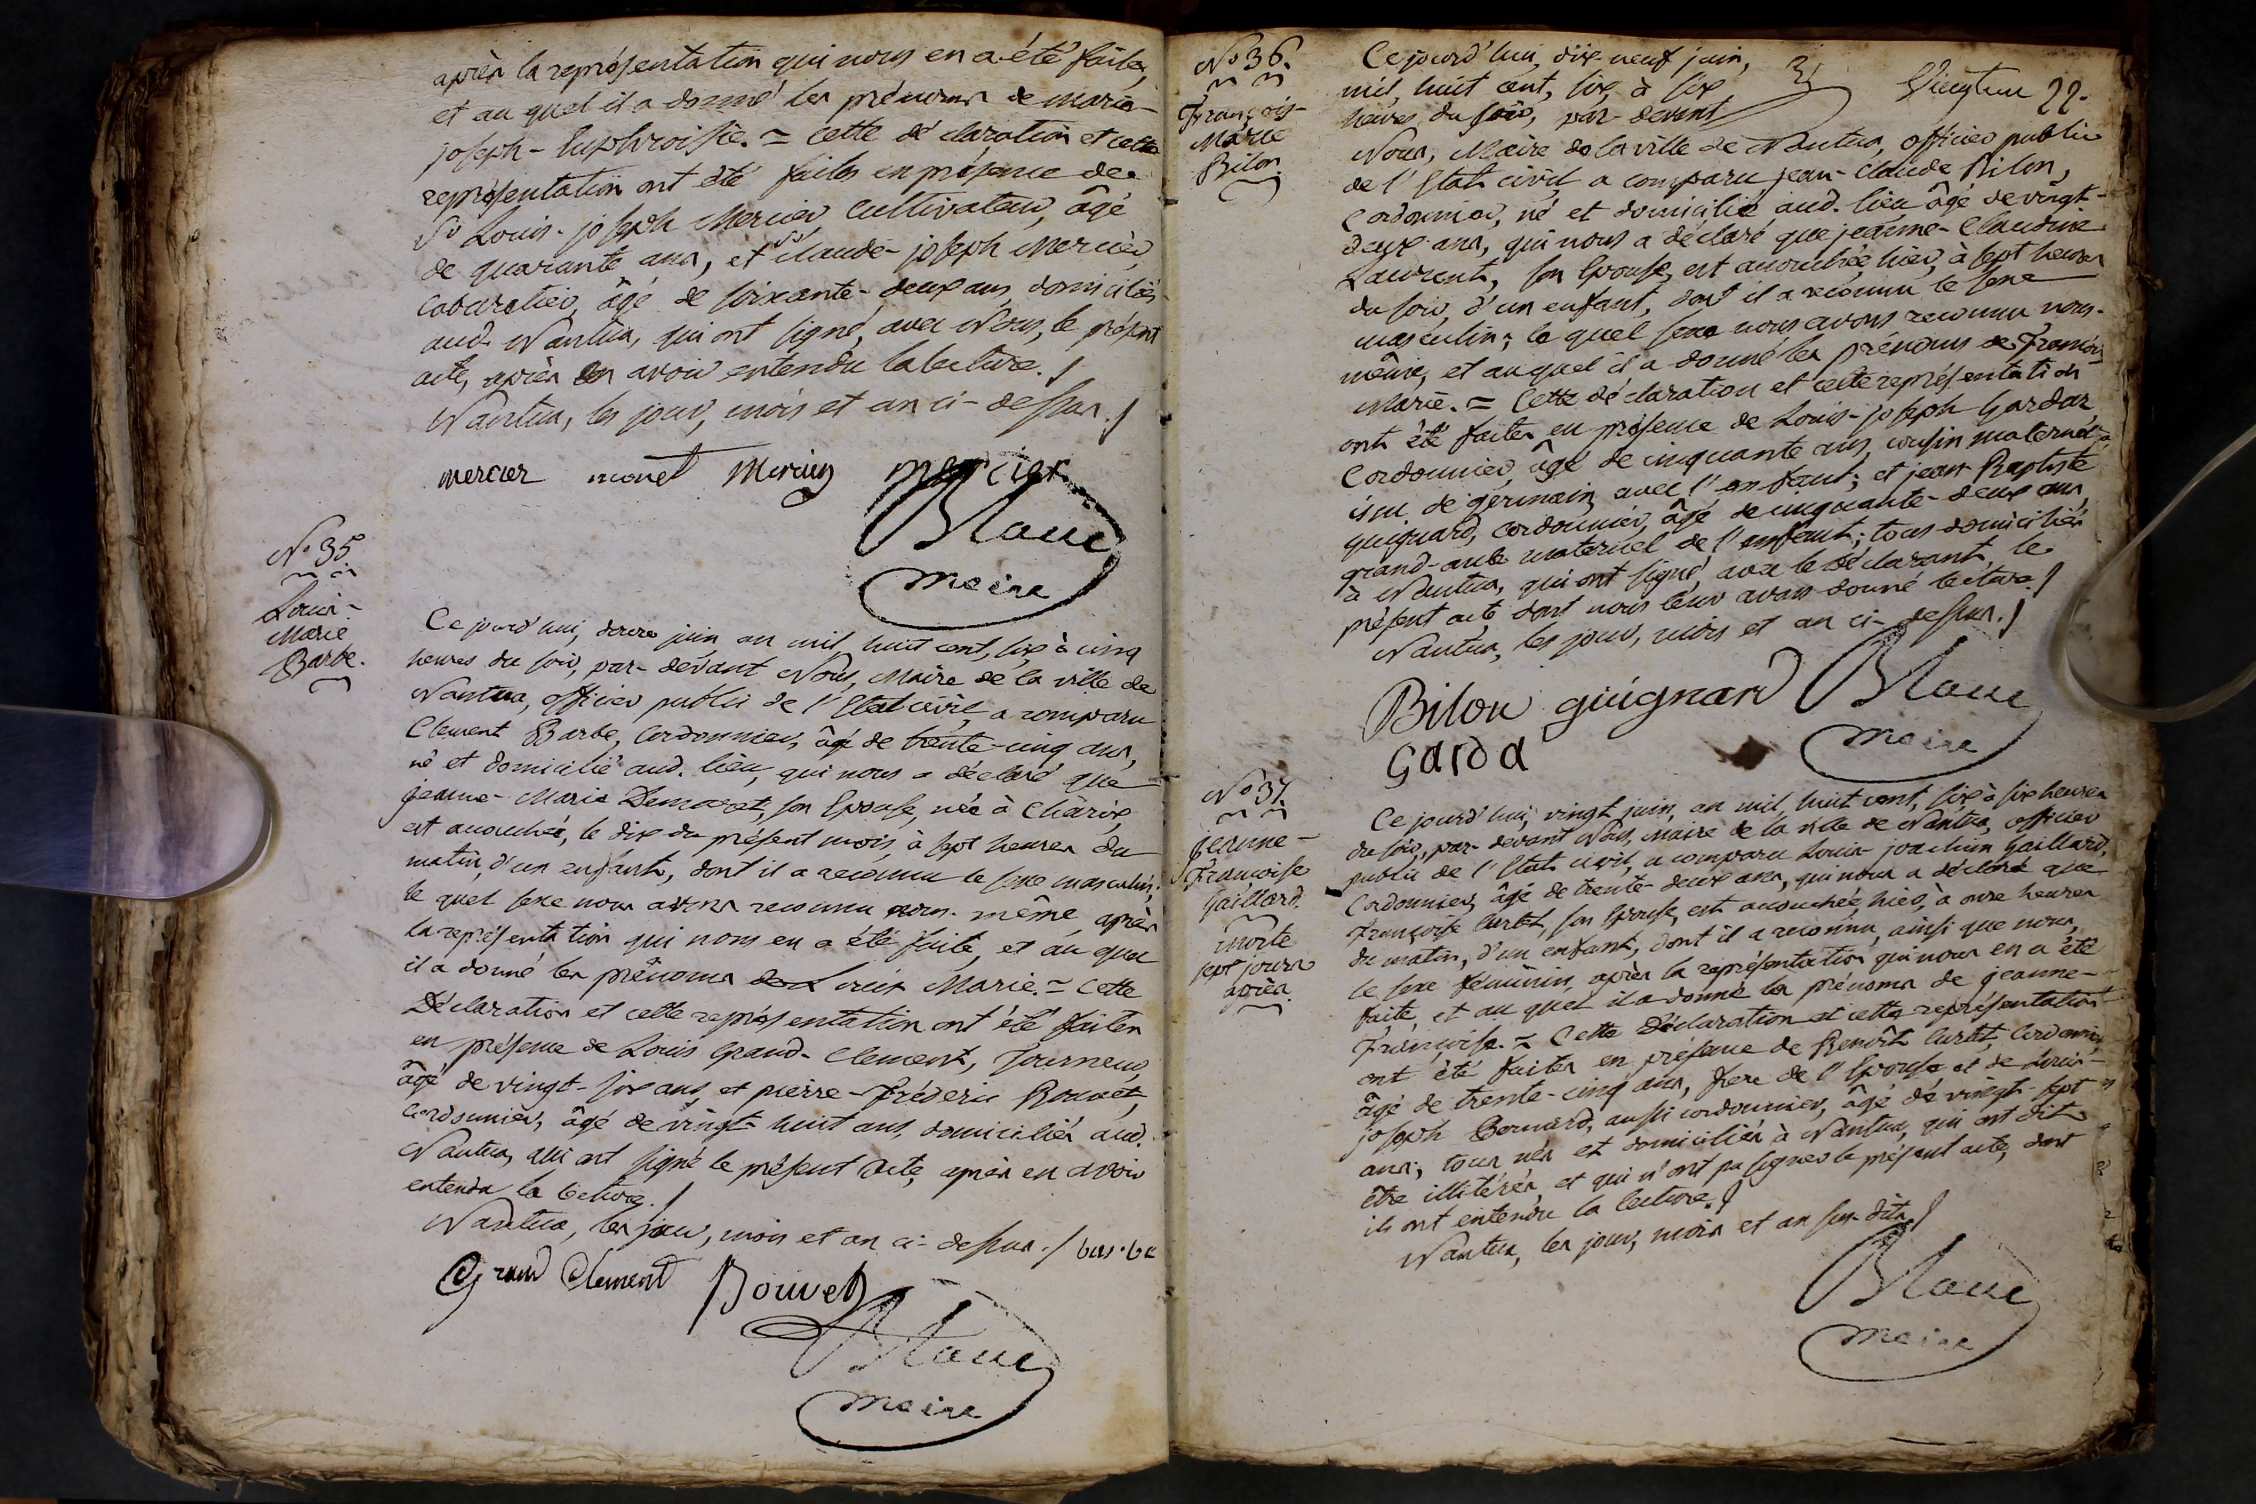 après la représentation qui nous en a été faite,
et au quel il a donné les prénoms de marie-
joseph-Euphroisie. = cette déclaration et cette
représentation ont été faites en présence de
Sr Louis-joseph Mercier, Cultivateur, âgé
de quarante ans, et Sr Claude-joseph Mercier,
Cabaretier, âgé de soixante-deux ans, domiciliés
aud. Nantua, qui ont signé, avec Nous, le présent
acte, après en avoir entendu la lecture. /
Nantua, les jour, mois et an ci-dessus. /
mercier monet Mercier mercier
Blanc
maire
No 35
Louis-
Marie
Barbe.
Ce jourd'hui, douze juin, an mil, huit cent, six à cinq
heures du soir, par-devant Nous, Maire de la ville de
Nantua, officier public de l'Etat civil, a comparu
Clement Barbe, Cordonnier, âgé de trente-cinq ans,
né et domicilié aud. lieu, qui nous a déclaré que
jeanne-Marie son Epouse, née à Charix,
est accouchée, le dix du présent mois, à sept heures du
matin, d'un enfant, dont il a reconnu le sexe masculin,
le quel sexe nous avons reconnu nous-même, après
la représentation qui nous en a été faite, et au quel
il a donné les prénoms de Louis Marie. = Cette
Déclaration et cette représentation ont été faites
en présence de Louis Grand-Clement, Tourneur,
âgé de vingt-six ans, et pierre-Fréderic Bouvet,
Cordonnier, âgé de vingt-huit ans, domiciliés aud.
Nantua, qui ont signé le présent acte, après en avoir
entendu la lecture. /
Nantua, les jour, mois et an ci-dessus. / barbe
Grand Clement Bouvet
Blanc
maire
No 36.
François-
Marie
Bilon.
Vingt-un 22.
Ce jourd'hui, dix-neuf juin,
mil, huit cent, six, à six
heures du soir, par-devant
Nous, Maire de la ville de Nantua, officier public
de l'Etat civil, a comparu jean-Claude Bilon,
Cordonnier, né et domicilié aud. lieu âgé de vingt-
deux ans, qui nous a déclaré que jeanne-Claudine
Laurent, son Epouse, est accouchée, hier, à sept heures
du soir, d'un enfant, dont il a reconnu le sexe
masculin; le quel sexe nous avons reconnu nous-
même, et au quel il a donné les prénoms de François
Marie. = Cette déclaration et cette représentation
ont été faites en présence de Louis-joseph Gardaz,
Cordonnier, âgé de cinquante ans, cousin maternel,
issu de germain avec l'enfant; et jean-Baptiste
guignard, cordonnier, âgé de cinquante-deux ans,
grand-oncle maternel de l'enfant; tous domiciliés
à Nantua, qui ont signé, avec le déclarant, le
présent acte, dont nous leur avons donné lecture. /
Nantua, les jour, mois et an ci-dessus. /
Bilon guignard Blanc
Garda maire
No 37.
jeanne-
Françoise
Gaillard.
morte
sept jours
après.
Ce jourd'hui, vingt juin, an mil, huit cent, six à six heures
du soir, par-devant Nous, Maire de la ville de Nantua, officier
public de l'Etat civil, a comparu Louis-joachim Gaillard,
Cordonnier, âgé de trente-deux ans, qui nous a déclaré que
Françoise Curtet, son Epouse, est accouchée, hier, à onze heures
du matin, d'un enfant, dont il a reconnu, ainsi que nous,
le sexe féminin, après la représentation qui nous en a été
faite, et au quel il a donné les prénoms de jeanne-
Françoise. = Cette Déclaration et cette représentation
ont été faites en présence de Benoît Curtet, Cordonnier
âgé de trente-cinq ans, frere de l'Epouse et de Louis-
joseph Bernard, aussi cordonnier, âgé de vingt-sept
ans; tous nés et domiciliés à Nantua, qui ont dit
être illitérés, et qui n'ont pu signer le présent acte, dont
ils ont entendu la lecture. /
Nantua, les jour, mois et an sus-dits /
Blanc
maire